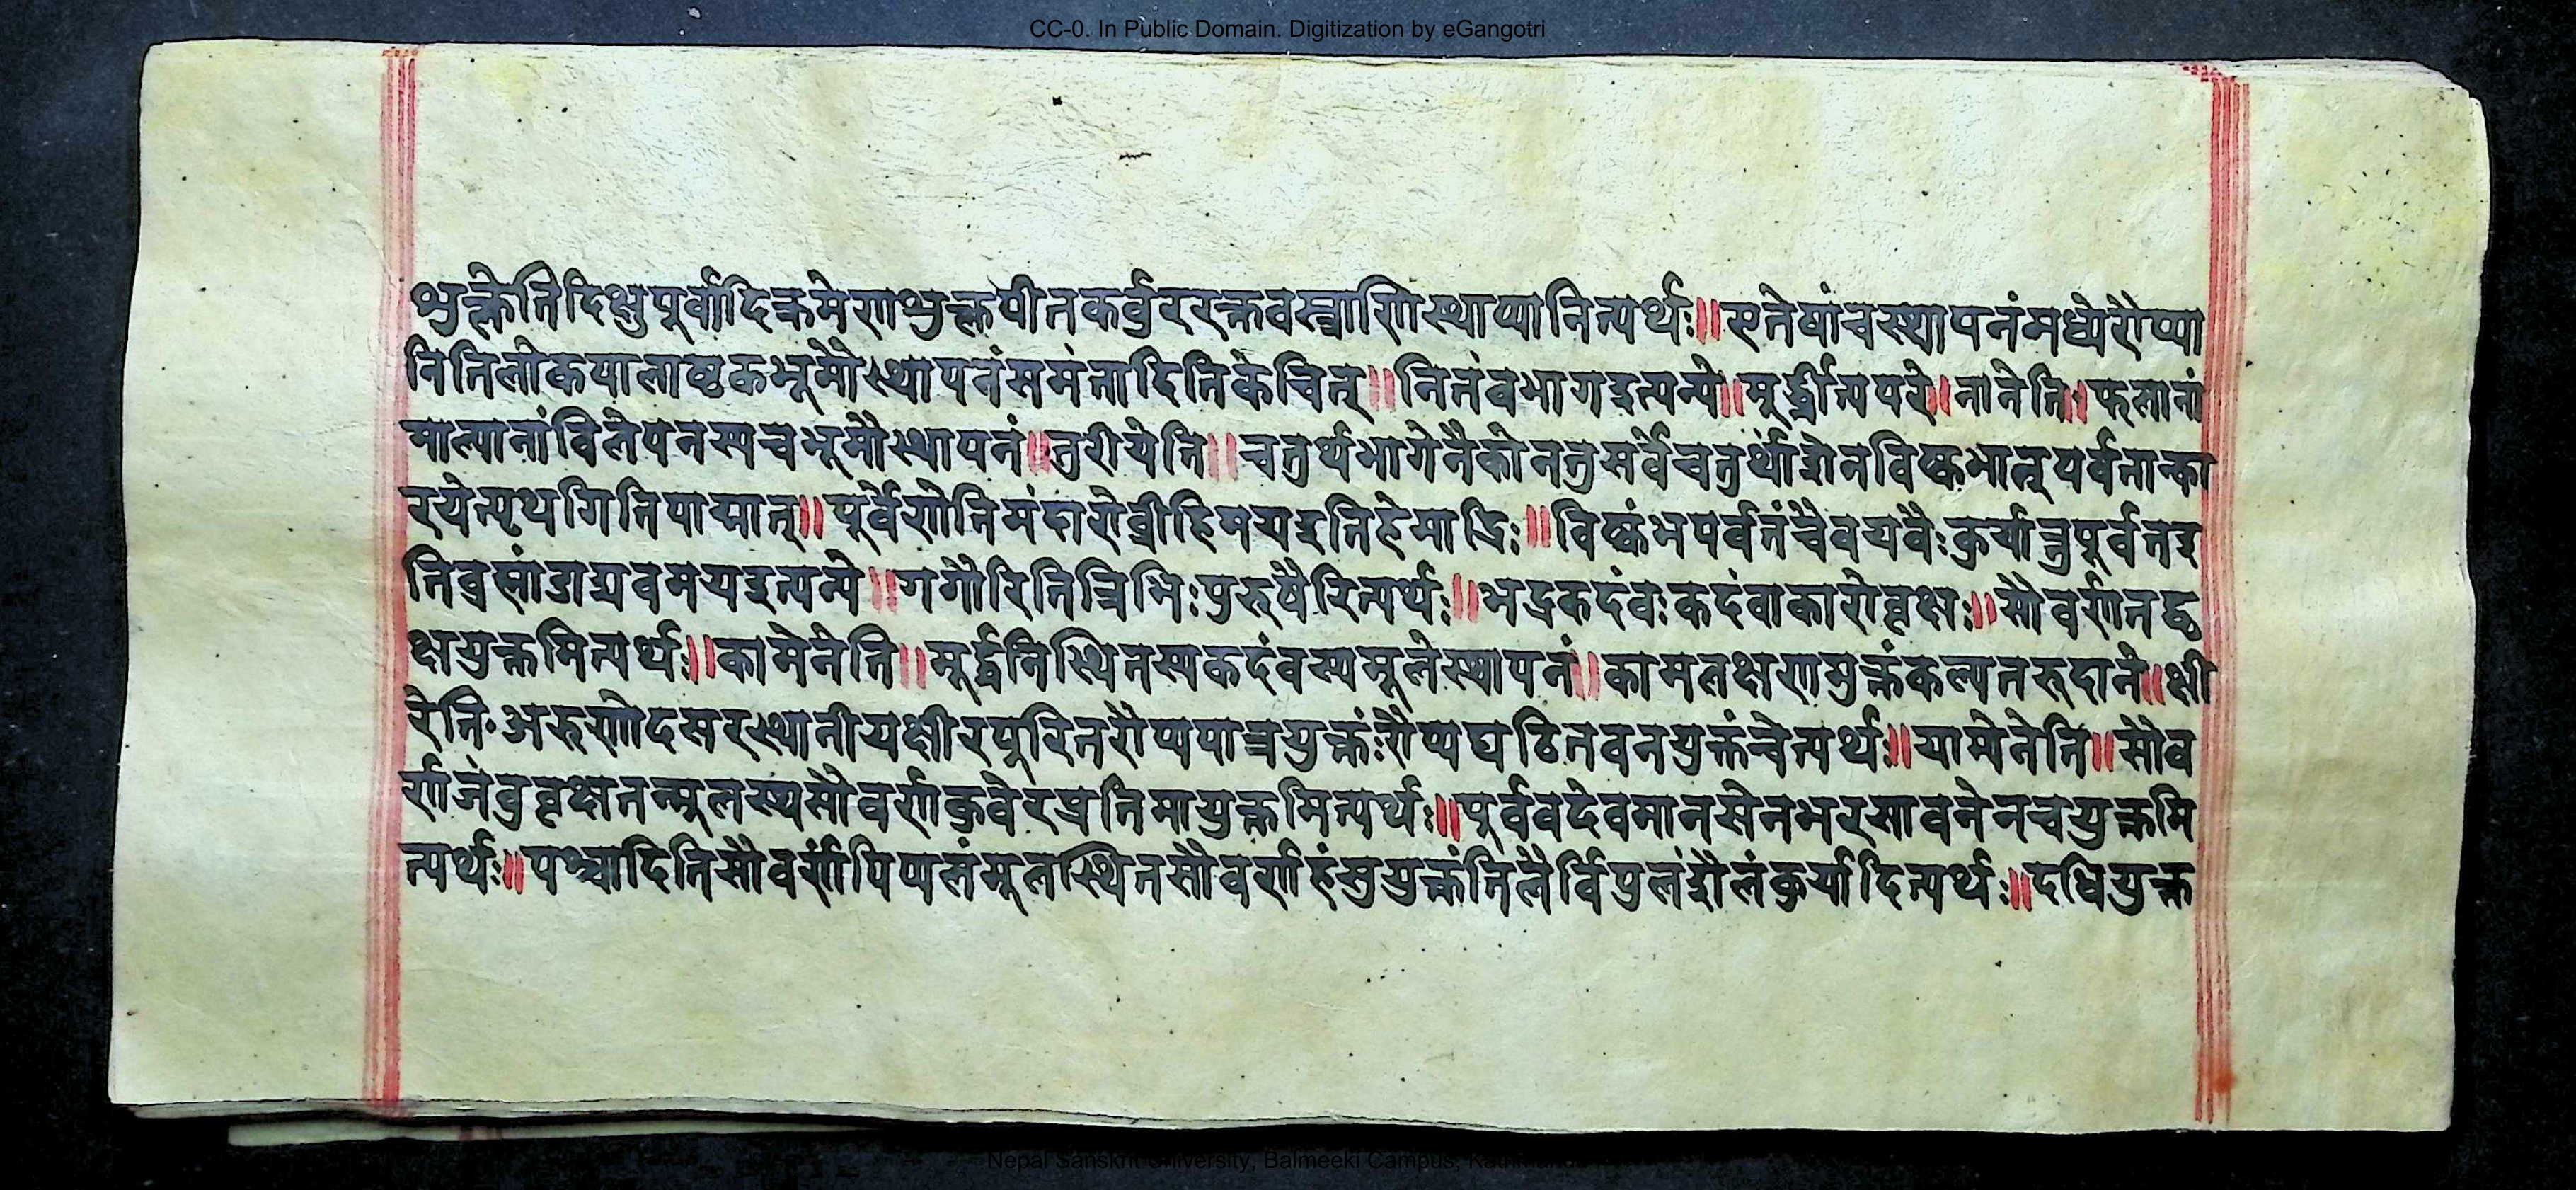 CC-0. In Public Domain. Digitization by eGangotri
शुक्लेतिदिक्षुपूर्वादिक्रमेणशुक्लपीतकर्वुररक्तवस्त्राणिस्थाप्यानित्यर्थः॥एतेषांचस्थापनंमध्येरौप्या
नितिलोकपालाष्टकभूमौस्थापनंसमंतादितिकेचित्॥नितंवभागइत्यन्ये॥मूर्द्ध्नीत्यपरे॥नानेति॥फलानां
माल्यानांविलेपनस्यचभूमौस्थापनं॥तुरीयेति॥चतुर्थभागेनैकोनतुसर्वेचतुर्थांशेनविष्कभात्नूपर्वतान्का
रयेत्पृथगितिपाद्मात्॥पूर्वेणेतिमंदारोव्रीहिमयइतिहेमाद्रिः॥विष्कंभपर्वतंचैवयवैःकुर्यात्तुपूर्वतइ
तिव्रह्मांडाद्यवमयइत्यन्ये॥गणैरितित्रिभिःपुरुषैरित्यर्थः॥भद्रकदंवःकदंवाकारोवृक्षः॥सौवर्णतद्वृ
क्षयुक्तमित्यर्थः॥कामेनेति॥मूर्द्धनिस्थितस्यकदंवस्यमूलेस्थापनं॥कामलक्षणमुक्तंकल्पतरुदाने॥क्षी
रेति॰अरुणोदसरस्थानीयक्षीरपूरितरौप्यपात्रयुक्तंःरौप्यघटितवनयुक्तंचेत्यर्थः॥यामेनेति॥सौव
र्णजंवुवृक्षतन्मूलस्थसौवर्णकुवेरप्रतिमायुक्तमित्यर्थः॥पूर्ववदेवमानसेनभरसावनेनचयुक्तमि
त्यर्थः॥पश्चादितिसौवर्णपिप्पलंमूलस्थितसौवर्णहंसुयुक्तंतिलैर्विपुलंशैलंकुर्यादित्यर्थः॥दधियुक्त
Nepal Sanskrit University, Balmeeki Campus, Kathmandu